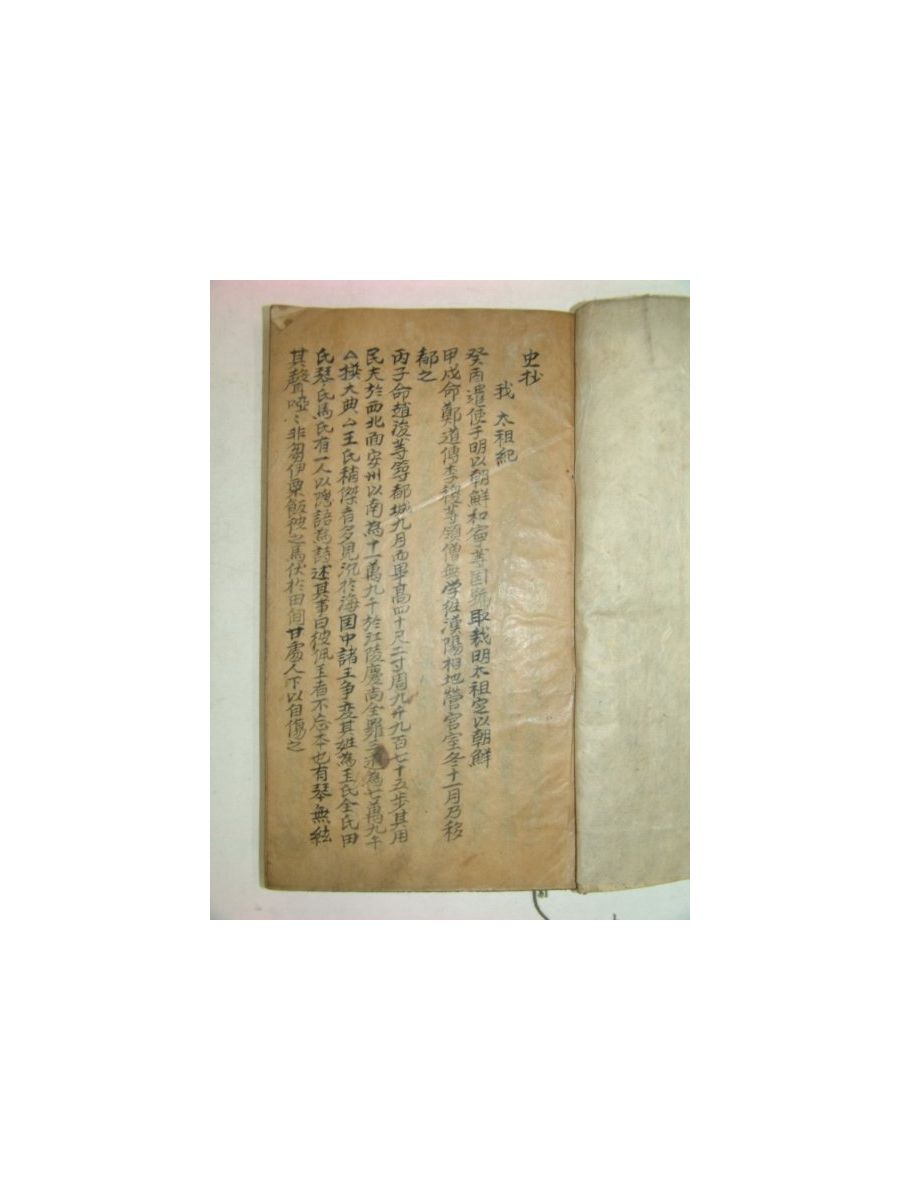 史抄
我 太祖紀
癸酉遣使于明以朝鮮和寧等国號取裁明太祖定以朝鮮
甲戌命鄭道傳李稷等領僧無学往漢陽相地營宮室冬十一月乃移
都之
丙子命趙浚等築都城九月而畢高四十尺二寸周九千九百七十五步其用
民夫於西北面安州以南為十一萬九千於江陵慶尚全羅三道為七萬九千
撰大典 王氏稱傑者多見沉於海国中諸王爭變其姓為玉氏全氏田
氏琴氏馬氏有一人以俚語為詩述其事曰彼佩玉者不忘本也有琴無絃
其聲啞〻非芻伊粟飯被之馬伏於田間甘處人下以自傷之